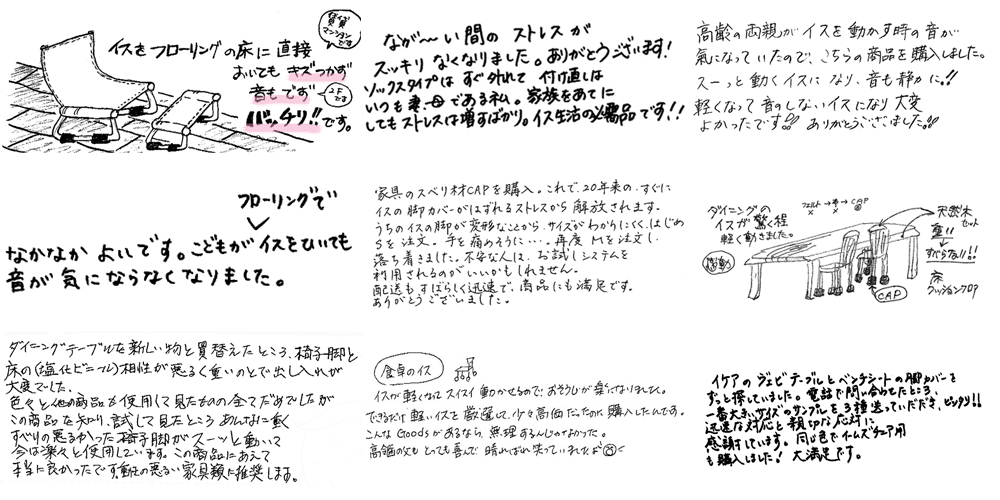 賃貸
マンション
です
イスをフローリングの床に直接
おいてもキズつかず
音もでず
2F
バッチリ!!です。
なが〜い間のストレスが
スッキリなくなりました。ありがとうございます!
ソックスタイプはすぐ外れて付け直しは
いつも妻、母である私。家族をあてに
してもストレスは増すばかり。イス生活の必需品です!!
高齢の両親がイスを動かす時の音が
気になっていたので、こちらの商品を購入しました。
スーっと動くイスになり、音も静かに!!
軽くなって音のしないイスになり大変
よかったです!! ありがとうございました!!
フローリングで
なかなかよいです。こどもがイスをひいても
音が気にならなくなりました。
家具のスベリ材CAPを購入。これで、20年来の、すぐに
イスの脚カバーがはずれるストレスから解放されます。
うちのイスの脚が変形なことから、サイズがわかりにくく、はじめ
Sを注文。手を痛めそうに…。再度Mを注文し、
落ち着きました。不安な人は、お試しシステムを
利用されるのがいいかもしれません。
配送もすばらしく迅速で、商品にも満足です。
ありがとうございました。
フェルト→キ→CAP
× ×
ダイニングの
イスが驚く程
軽く動きました。
感動
天然木
セット
重!!
すべらない!!
床
クッションフロア
CAP
ダイニングテーブルを新しい物と買替えたところ、椅子脚と
床の(塩化ビニール)相性が悪く重いので出し入れが
大変でした。
色々と他の商品を使用して見たもの全てだめでしたが
この商品を知り、試して見たところあんなに重く
すべりの悪るかった椅子脚がスーッと動いて
今は楽々と使用しています。この商品にあえて
本当に良かったです。動きの悪るい家具類に推奨します。
食卓のイス
イスが軽くなってスイスイ動かせるので、おそうじが楽になりました。
できるだけ軽いイスを厳選して、少々高価だったのに購入したんです。
こんなGoodsがあるなら、無理するんじゃなかった。
高齢の父もとても喜んで晴ればれ笑っていましたよ
イケアのジェビテーブルとベンチシートの脚カバーを
ずっと探していました。電話で問い合わせたところ、
一番大きいサイズのサンプルを3種送っていただき、ピッタリ!!
迅速な対応と親切な応対に
感謝しています。同じ色でイームズチェア用
も購入しました! 大満足です。